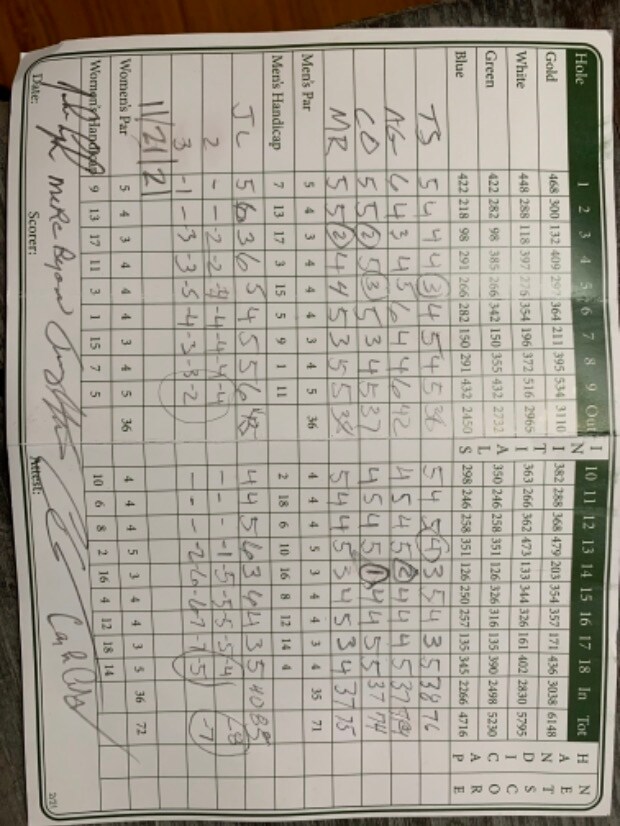 Hole 1 2 3 4 5 6 7 8 9 Out INITIALS 10 11 12 13 14 15 16 17 18 In Tot HANDICAP NET SCORE
Gold 468 300 132 409 297 364 211 395 534 3110 382 288 368 479 203 354 357 171 436 3038 6148
White 448 288 118 397 276 354 196 372 516 2965 363 266 362 473 133 344 326 161 402 2830 5795
Green 422 282 98 385 266 342 150 355 432 2732 350 246 258 351 126 326 316 135 390 2498 5230
Blue 422 218 98 291 266 282 150 291 432 2450 298 246 258 351 126 250 257 135 345 2266 4716
TS 5 4 4 4 3 4 5 4 5 38 5 4 5 4 3 5 4 3 5 38 76
AG 6 4 3 4 5 6 4 4 6 42 4 5 4 5 2 4 4 4 5 37
CO 5 5 2 5 3 5 3 4 5 37 4 5 4 5 1 4 4 5 5 37 74
MR 5 5 2 4 4 5 3 5 5 38 5 4 4 5 3 4 5 3 4 37 75
Men's Par 5 4 3 4 4 4 3 4 5 36 4 4 4 5 3 4 4 3 4 35 71
Men's Handicap 7 13 17 3 15 5 9 1 11 2 18 6 10 16 8 12 14 4
JL 5 6 3 6 5 4 5 5 6 45 4 4 5 6 3 6 4 3 5 40 85
2 - - -2 -2 -4 -4 -4 -4 -4 - - - -1 -5 -5 -5 -5 -4
3 -1 - -3 -3 -5 -4 -3 -3 -2 - - - -2 -6 -6 -7 -7 -5 -7
11/21/21
Women's Par 5 4 3 4 4 4 3 4 5 36 4 4 4 5 3 4 4 3 5 36 72
Women's Handicap 9 13 17 11 3 1 15 7 5 10 6 8 2 16 4 12 18 14
Date: Scorer: Attest:
2/21